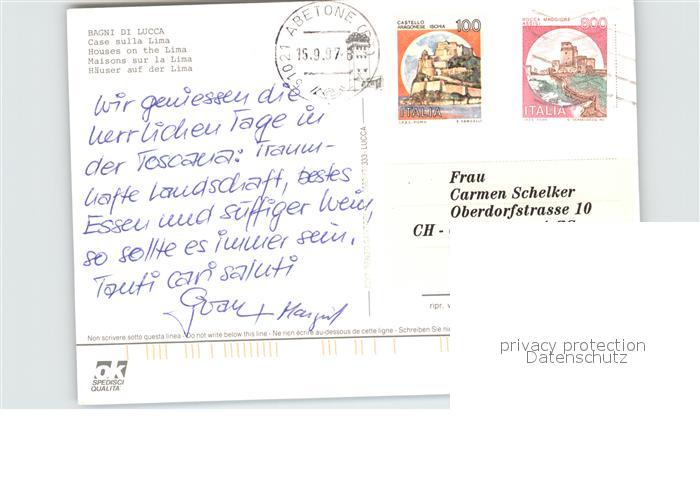 BAGNI DI LUCCA
Case sulla Lima
Houses on the Lima
Maisons sur la Lima
Häuser auf der Lima
51021 ABETONE
15.9.97-8
CASTELLO
ARAGONESE ISCHIA
100
ITALIA
ROCCA MAGGIORE
ASSISI
800
ITALIA
Wir geniessen die
herrlichen Tage in
der Toscana: Traum-
hafte Landschaft, bestes
Essen und süffiger Wein,
so sollte es immer sein.
Tanti cari saluti
+ Margrit
333 LUCCA
Frau
Carmen Schelker
Oberdorfstrasse 10
CH -
ripr. v
Non scrivere sotto questa linea - Do not write below this line - Ne rien écrire au-dessous de cette ligne - Schreiben Sie ni
ok
SPEDISCI
QUALITA'
privacy protection
Datenschutz